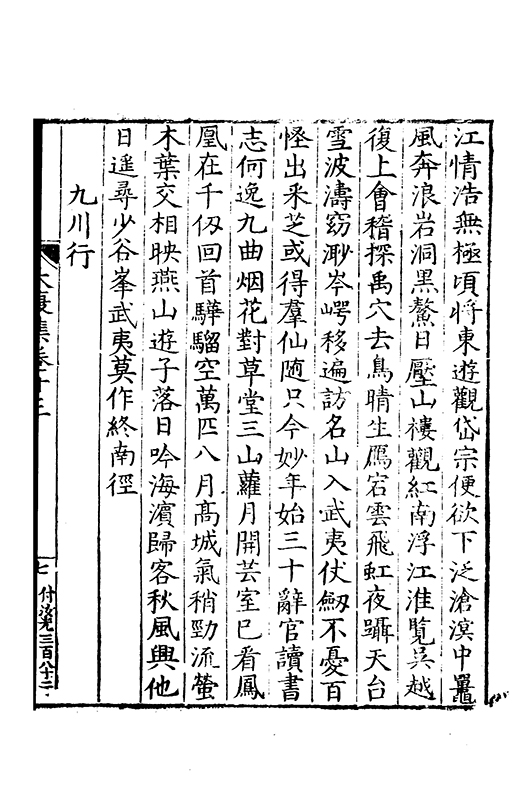 江情浩無極頃將東遊觀岱宗便欲下泛滄溟中鼍
風奔浪岩洞黑鰲日壓山樓觀紅南浮江淮覽吳越
復上會稽探禹穴去鳥晴生鴈宕雲飛虹夜躡天台
雪波濤窈渺岑崿移遍訪名山入武夷仗劒不憂百
怪出釆芝或得羣仙随只今妙年始三十辭官讀書
志何逸九曲烟花對草堂三山蘿月開芸室已看鳳
凰在千仭回首驊騮空萬匹八月髙城氣稍勁流螢
木葉交相映燕山遊子落日吟海濱歸客秋風興他
日遥尋少谷峯武夷莫作終南徑
九川行
大復集卷十三
七
付汝光三百八十二